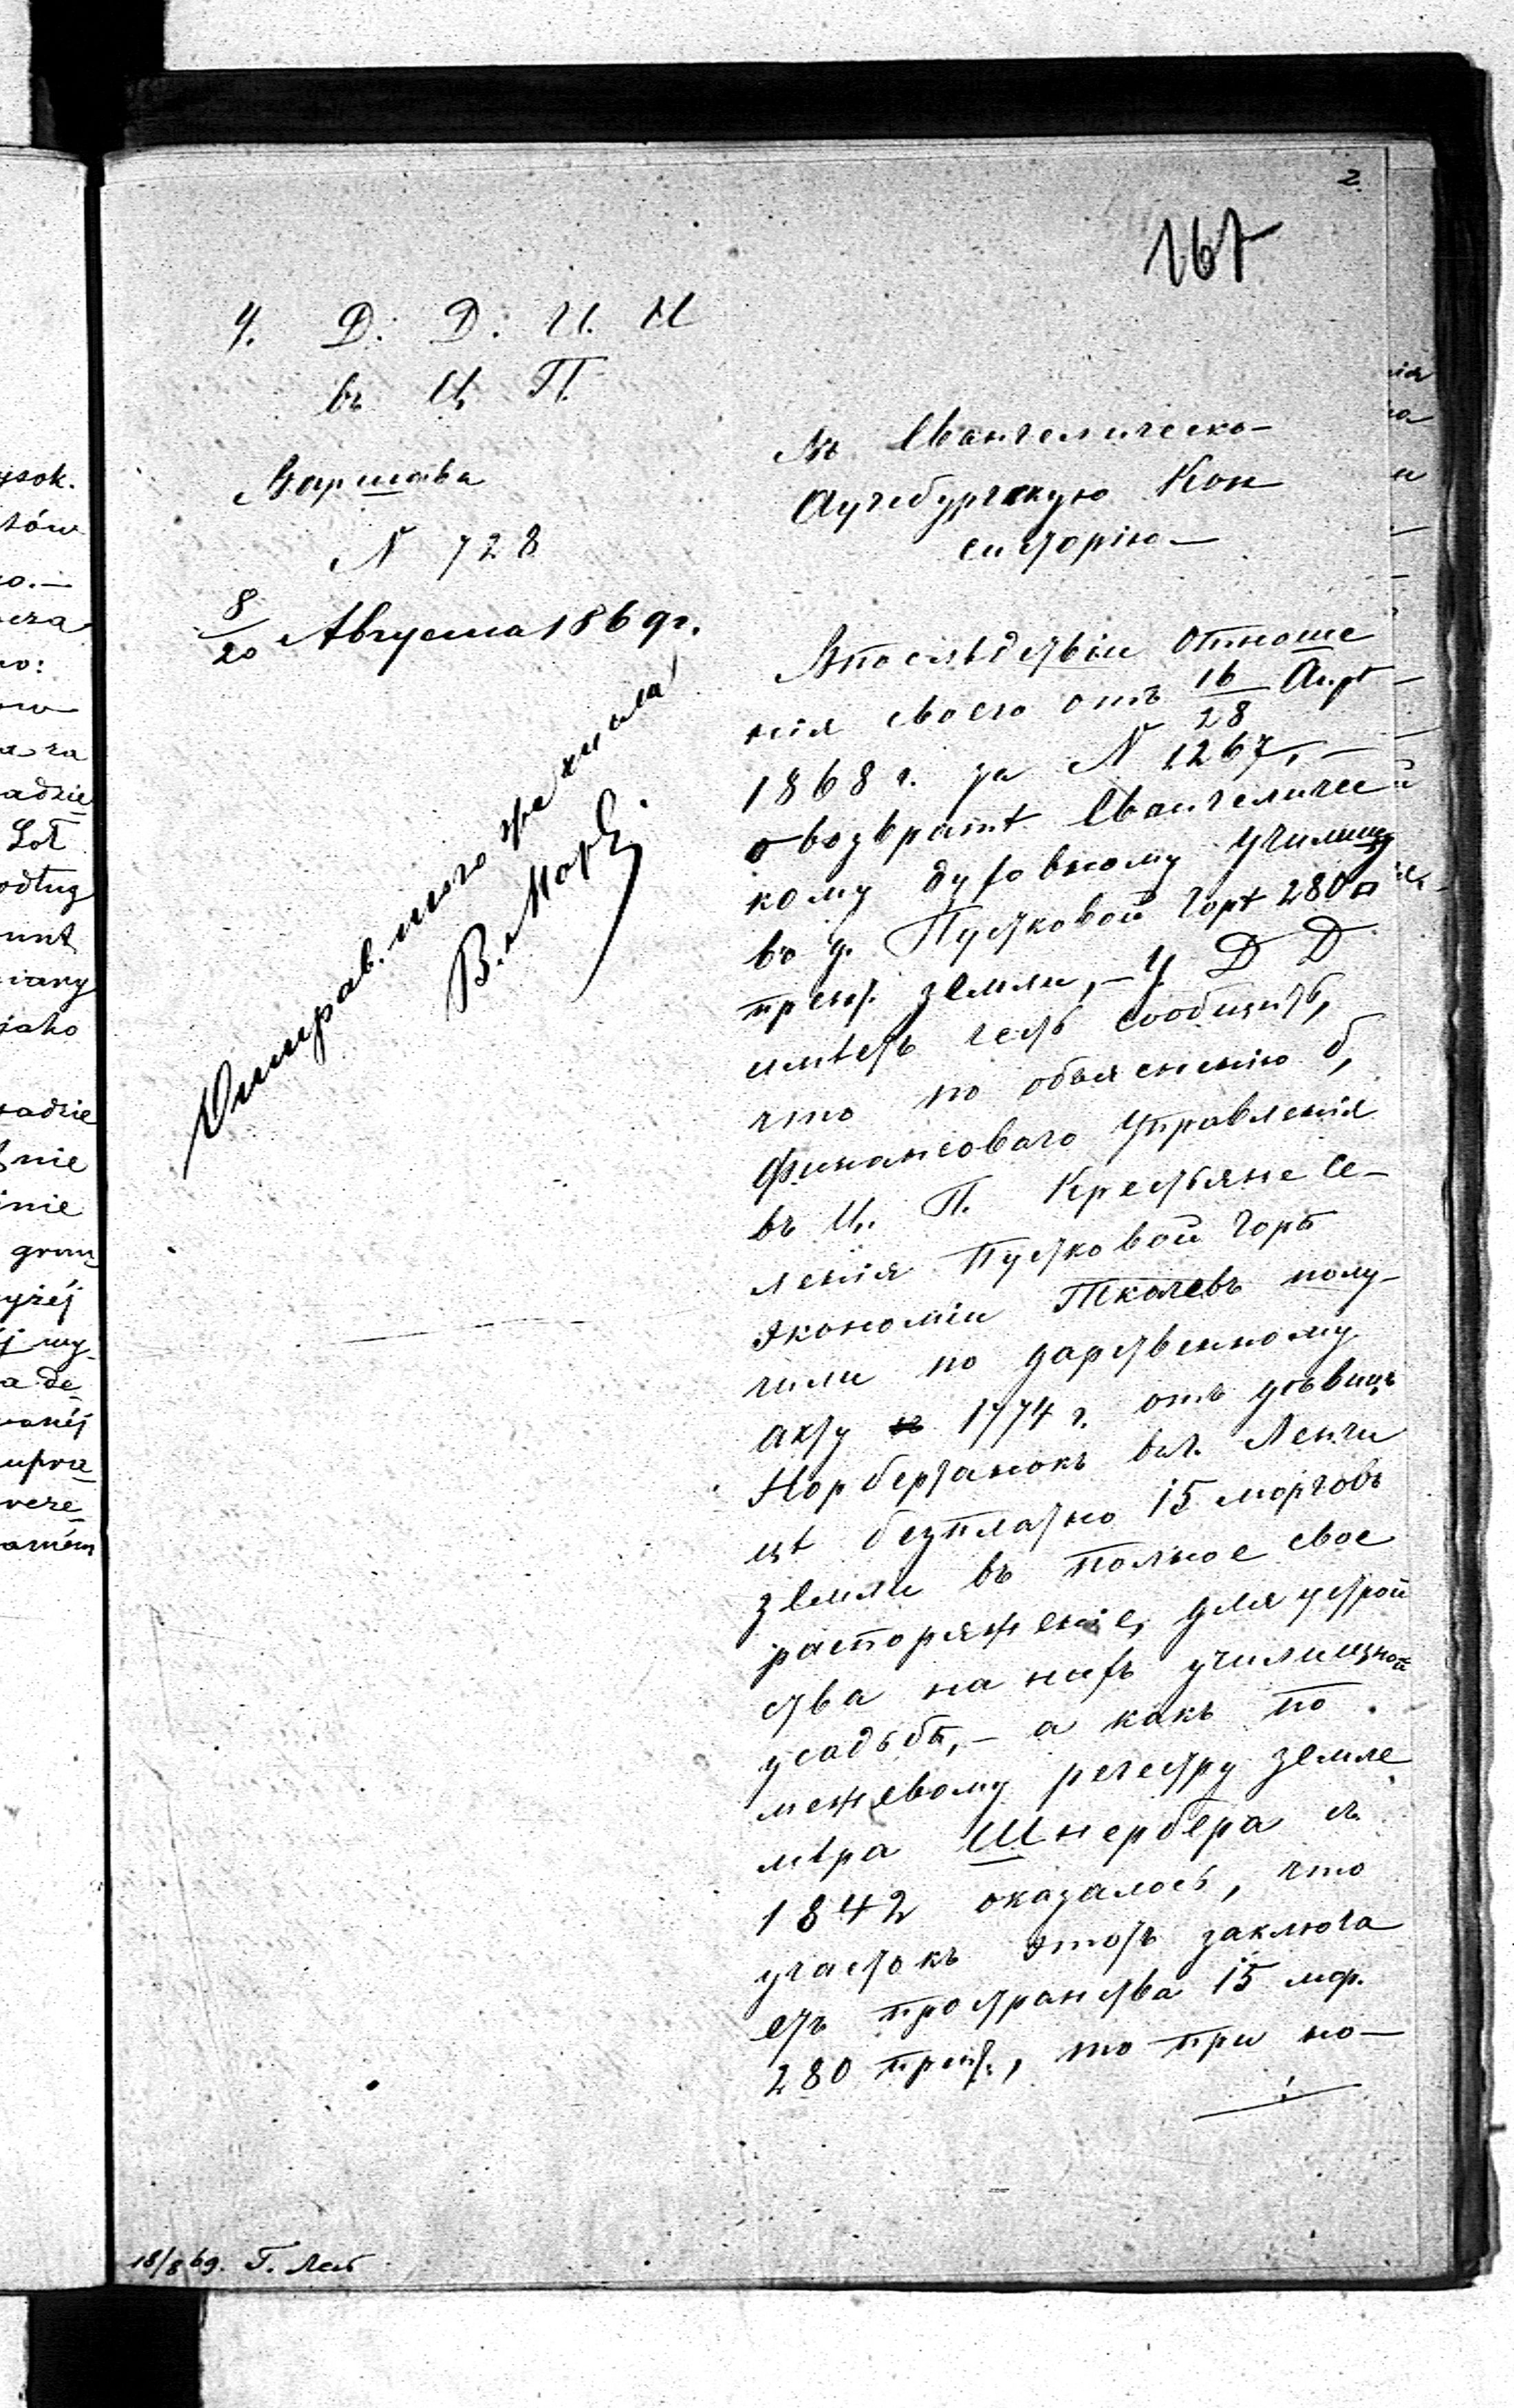 2.
167
У. Д. Д. И. И
въ Ц. П.
Варшава
N 728
8/20 Августа 1869 г.
В.
Въ Евангелическо-
Аугсбургскую Кон
систорію—
Впослѣдствіи отноше
нія своего отъ 16/28 Апр
1868 г. за N 1267, —
о возвратѣ Евангеличес
кому духовному училищу
въ д. Пустковой Горѣ 280
прент. земли, — У. Д. Д.
имѣетъ честь сообщить,
что по объясненію б,
Финансоваго Управленія
въ Ц. П. Крестьяне се—
ленія Пустковой Горѣ
Экономіи Ткачевъ полу—
чили по дарственному
акту 1774 г. отъ дѣвицъ
Норбертанокъ въ г. Ленчи
цѣ безплатно 15 морговъ
земли въ полное свое
распоряженіе, для устрой
ства на ней училищной
усадьбѣ, — а какъ по
межевому регестру земле
мѣра Шнербера съ
1842 оказалось, что
участокъ этотъ заключа
етъ пространства 15 мор.
280 прент., то при но—
18/8 69. Г.
ysok.
tów
o.—
cza
adzie
odług
unt
iany
jako
sadzie
nie
nie
grun
yżéj
j wy
a de
wanéj
upra